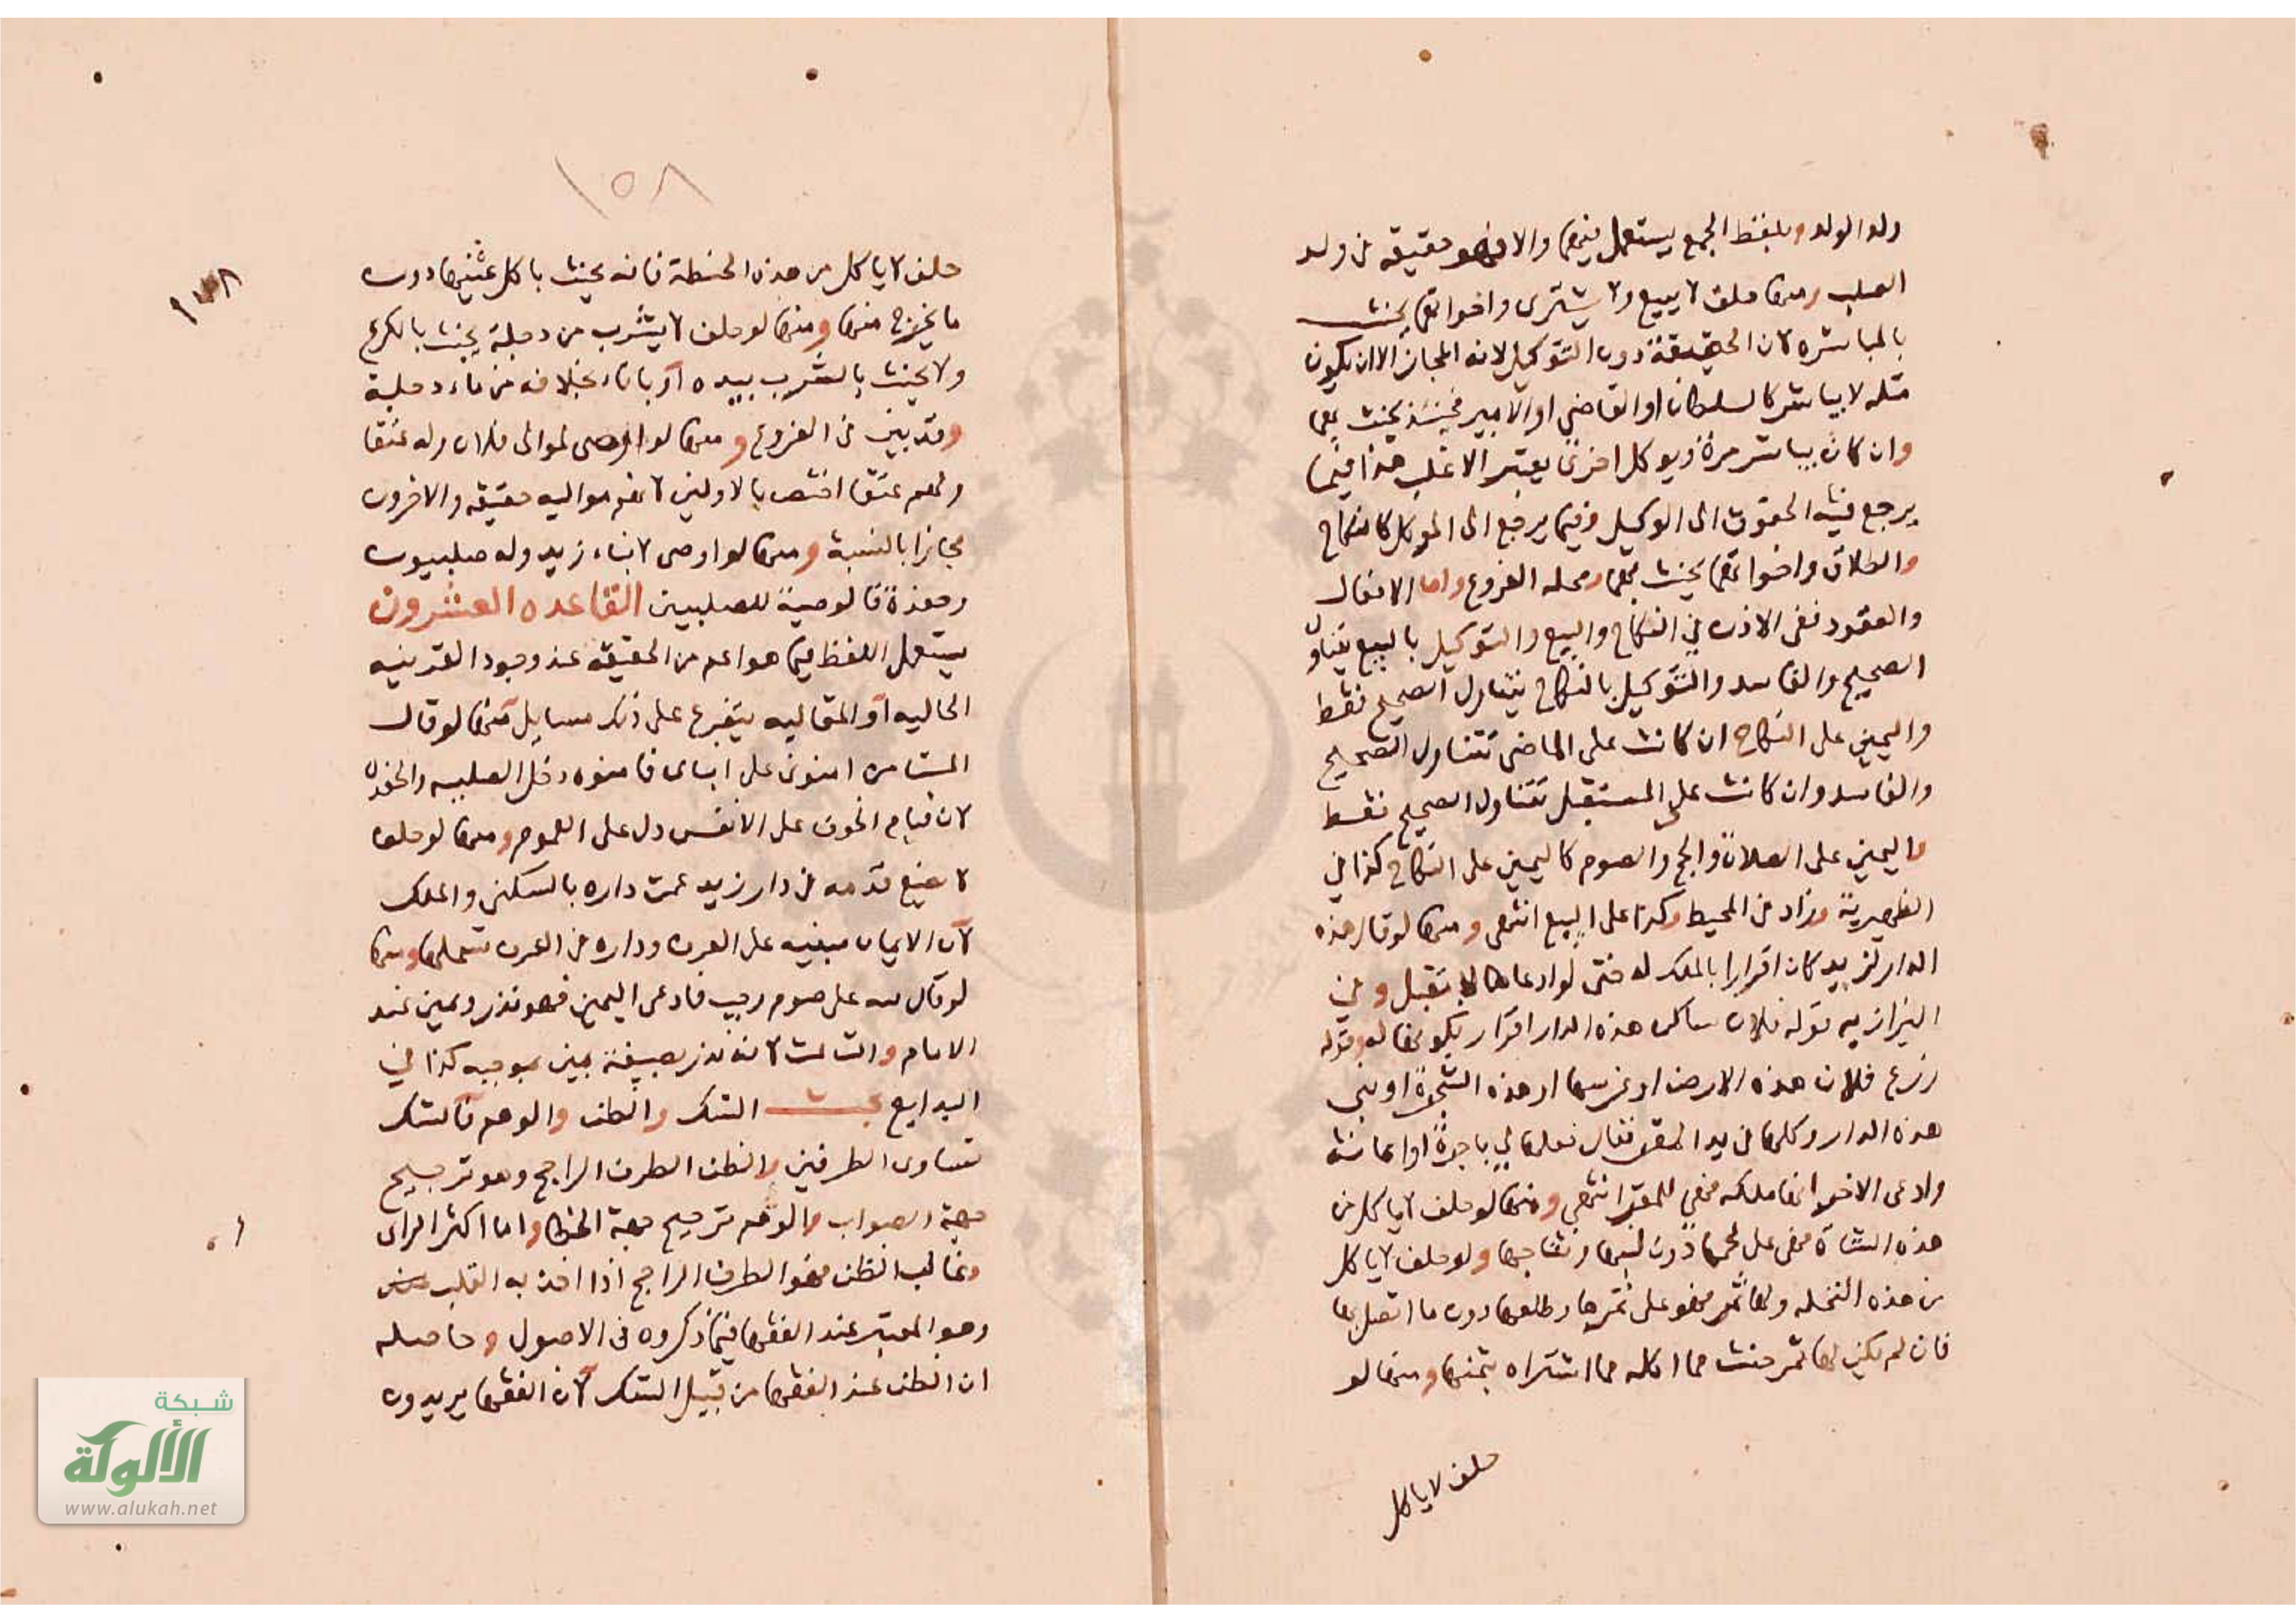 ولد الولد وبلفظ الجمع يستعمل فيهما والا فهو حقيقه في ولد
الصلب ومنها حلف لا يبيع ولا يشترى واخواتهما يحنث
بالمباشره لان الحقيقة دون التوكيل لانه المجاز الا ان يكون
مثله لا يباشر كالسلطان او القاضي او الامير فحينئذ يحنث بهما
وان كان يباشر مرة ويوكل اخرى يعتبر الاغلب هذا فيما
يرجع فيه الحقوق الى الوكيل وفيما يرجع الى الموكل كالنكاح
والطلاق واخواتهما يحنث بهما ومحله الفروع واما الافعال
والعقود ففى الاذن في النكاح والبيع والتوكيل بالبيع يتناول
الصحيح والفاسد والتوكيل بالنكاح يتناول الصحيح فقط
واليمين على النكاح ان كانت على الماضى تتناول الصحيح
والفاسد وان كانت على المستقبل تتناول الصحيح فقط
واليمين على الصلاة والحج والصوم كاليمين على النكاح كذا في
الظهيرية وزاد في المحيط وكذا على البيع انتهى ومنها لو قال هذه
الدار لزيد كان اقرارا بالملك له حتى لو ادعاها لا تقبل وفي
البزازيه قوله فلان ساكن هذه الدار اقرار بكونها له وقوله
زرع فلان هذه الارض او غرسها او هذه الشجرة او بنى
هذه الدار وكلها في يد المقر فقال فعلها لي باجرة او اعانة
وادعى الاخر انها ملكه فهي للمقر انتهى ومنها لو حلف لا ياكل من
هذه الشاة فهى على لحمها دون لبنها ونتاجها ولو حلف لا ياكل
من هذه النخله ولها ثمر فهو على ثمرها وطلعها دون ما اتصل بها
فان لم يكن لها ثمر حنث مما اكله مما اشتراه بثمنها ومنها لو
حلف لا ياكل
١٥٨
حلف لا ياكل من هذه الحنطة فانه يحنث باكل عينها دون
ما يخرج منها ومنها لو حلف لا يشرب من دجلة يحنث بالكرع
ولا يحنث بالشرب بيده او باناء بخلافه من ماء دجلة
وقد بين في الفروع ومنها لو اوصى لموالى فلان وله عتقا
ولهم عتقا اختص بالاولين لانهم مواليه حقيقه والاخرون
مجازا بالنسبة ومنها لو اوصى لابناء زيد وله صلبيون
وحفدة فالوصية للصلبيين القاعده العشرون
يستعمل اللفظ فيما هو اعم من الحقيقه عند وجود القرينه
الحاليه او المقاليه يتفرع على ذلك مسايل منها لو قال
المستامن امنونى على ابناى فامنوه دخل الصلبيه والحفدة
لان قيام الخوف على الانفس دل على العموم ومنها لو حلف
لا يضع قدمه في دار زيد عمت داره بالسكنى والملك
لان الايمان مبنيه على العرف وداره في العرف تشملها ومنها
لو قال لله على صوم رجب فادعى اليمين فهو نذر ويمين عند
الامام والثالث لانه نذر بصيغته يمين بموجبه كذا في
البدايع بحث الشك والظن والوهم فالشك
تساوى الطرفين والظن الطرف الراجح وهو ترجيح
جهة الصواب والوهم ترجيح جهة الخطا واما اكثر الراى
وغالب الظن فهو الطرف الراجح اذا اخذ به القلب
وهو المعتبر عند الفقها فيما ذكروه فى الاصول وحاصله
ان الظن عند الفقها من قبيل الشك لان الفقها يريدون
شبكة
الألوكة
www.alukah.net